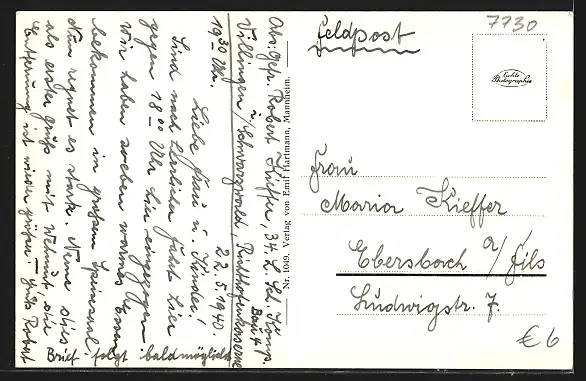 Abs: Gefr. Robert Kieffer, 34. L. Sch. Komp.
Bau 4
Villingen i/Schwarzwald, Richthofenkaserne
19 30 Uhr. 22.5.1940.
Liebe Frau u. Kinder!
Sind nach herrlicher Fahrt hier
gegen 18 00 Uhr hier eingezogen
Wir haben soeben warmes Essen
bekommen in großem Speisesaal.
Nun regnet es stark. Nimm dies
als erster Gruß mit Wehmut, die
Entfernung ist wieder größer –
Robert
Brief folgt baldmöglichst
Nr. 1049. Verlag von Emil Hartmann, Mannheim.
Feldpost
7730
Echte
Photographie
Frau
Maria Kieffer
Ebersbach a/Fils
Ludwigstr. 7.
€ 6